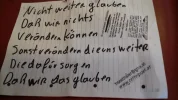 Nicht weiter glauben
Daß wir nichts
Verändern können
Sonst verändern die uns weiter
Die dafür sorgen
Daß wir das glauben